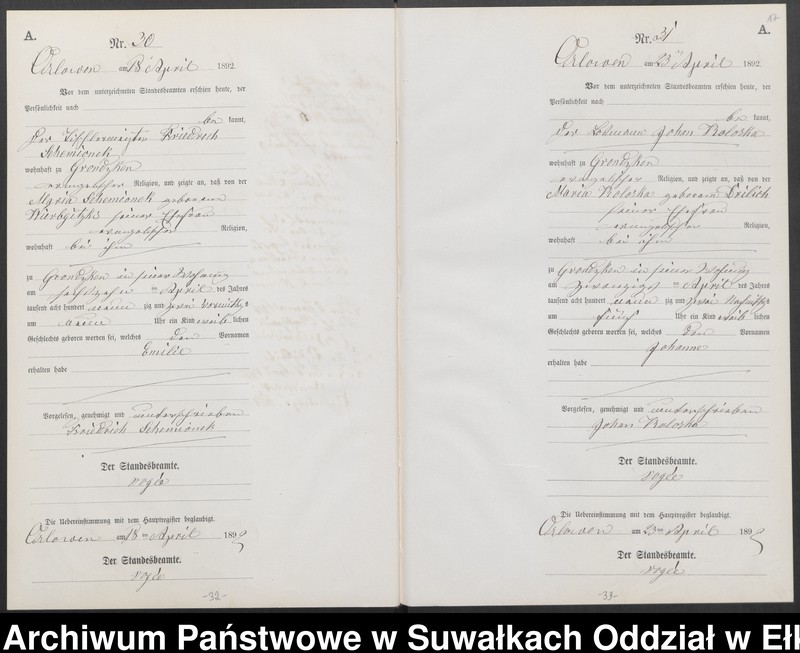 A.
Nr. 30
Orlowen am 18ten April 1892.
Vor dem unterzeichneten Standesbeamten erschien heute, der
Persönlichkeit nach
be kannt,
der Tischlermeister Friedrich
Schemionek
wohnhaft zu Grondzken
evangelischer Religion, und zeigte an, daß von der
Maria Schemionek geborenen
seiner Ehefrau
evangelischer Religion,
wohnhaft bei ihm
zu Grondzken in seiner Wohnung
am sechszehn ten April des Jahres
tausend acht hundert neun zig und zwei Vormittags
um neun Uhr ein Kind weib lichen
Geschlechts geboren worden sei, welches den Vornamen
Emilie
erhalten habe
Vorgelesen, genehmigt und unterschrieben
Friedrich Schemionek
Der Standesbeamte.
Die Uebereinstimmung mit dem Hauptregister beglaubigt.
Orlowen am 18ten April 189
Der Standesbeamte.
-32-
17
A.
Nr. 31
Orlowen am 23ten April 1892.
Vor dem unterzeichneten Standesbeamten erschien heute, der
Persönlichkeit nach
be kannt,
der Losmann Johan Koloska
wohnhaft zu Grondzken
evangelischer Religion, und zeigte an, daß von der
Maria Koloska geborenen
seiner Ehefrau
evangelischer Religion,
wohnhaft bei ihm
zu Grondzken in seiner Wohnung
am zwanzigs ten April des Jahres
tausend acht hundert neun zig und zwei Nachmittags
um fünf Uhr ein Kind weib lichen
Geschlechts geboren worden sei, welches den Vornamen
Johanne
erhalten habe
Vorgelesen, genehmigt und unterschrieben
Johan Koloska
Der Standesbeamte.
Die Uebereinstimmung mit dem Hauptregister beglaubigt.
Orlowen am 23ten April 189
Der Standesbeamte.
-33-
Archiwum Państwowe w Suwałkach Oddział w Ełk